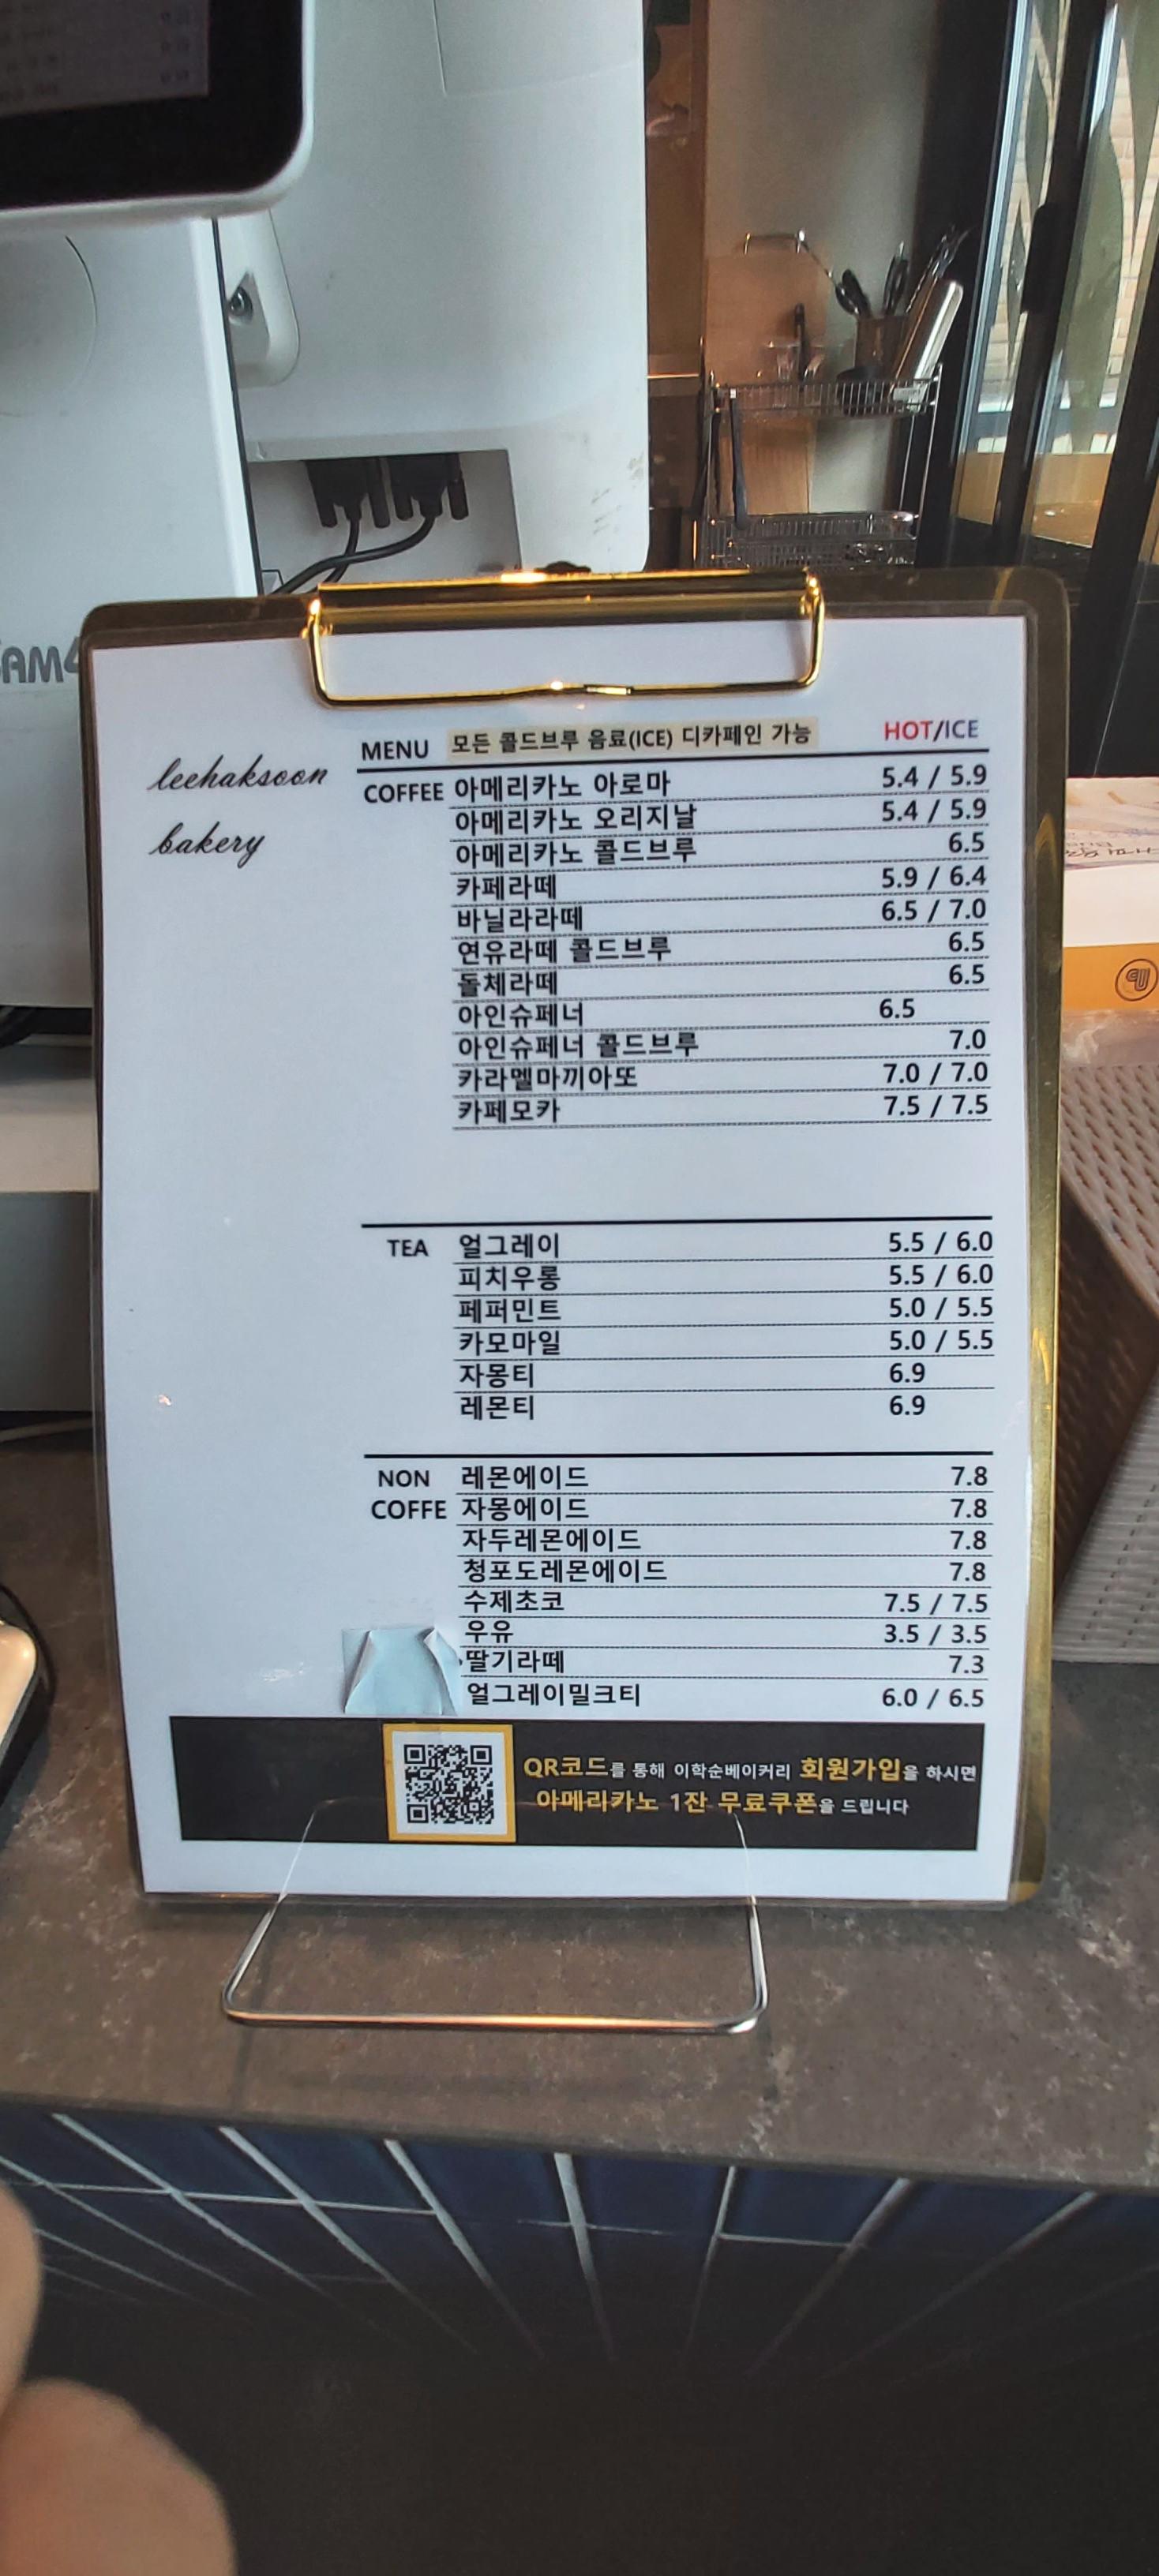 leehaksoon
bakery
MENU 모든 콜드브루 음료(ICE) 디카페인 가능 HOT/ICE
COFFEE 아메리카노 아로마 5.4 / 5.9
아메리카노 오리지날 5.4 / 5.9
아메리카노 콜드브루 6.5
카페라떼 5.9 / 6.4
바닐라라떼 6.5 / 7.0
연유라떼 콜드브루 6.5
돌체라떼 6.5
아인슈페너 6.5
아인슈페너 콜드브루 7.0
카라멜마끼아또 7.0 / 7.0
카페모카 7.5 / 7.5
TEA 얼그레이 5.5 / 6.0
피치우롱 5.5 / 6.0
페퍼민트 5.0 / 5.5
카모마일 5.0 / 5.5
자몽티 6.9
레몬티 6.9
NON 레몬에이드 7.8
COFFE 자몽에이드 7.8
자두레몬에이드 7.8
청포도레몬에이드 7.8
수제초코 7.5 / 7.5
우유 3.5 / 3.5
딸기라떼 7.3
얼그레이밀크티 6.0 / 6.5
QR코드를 통해 이학순베이커리 회원가입을 하시면
아메리카노 1잔 무료쿠폰을 드립니다